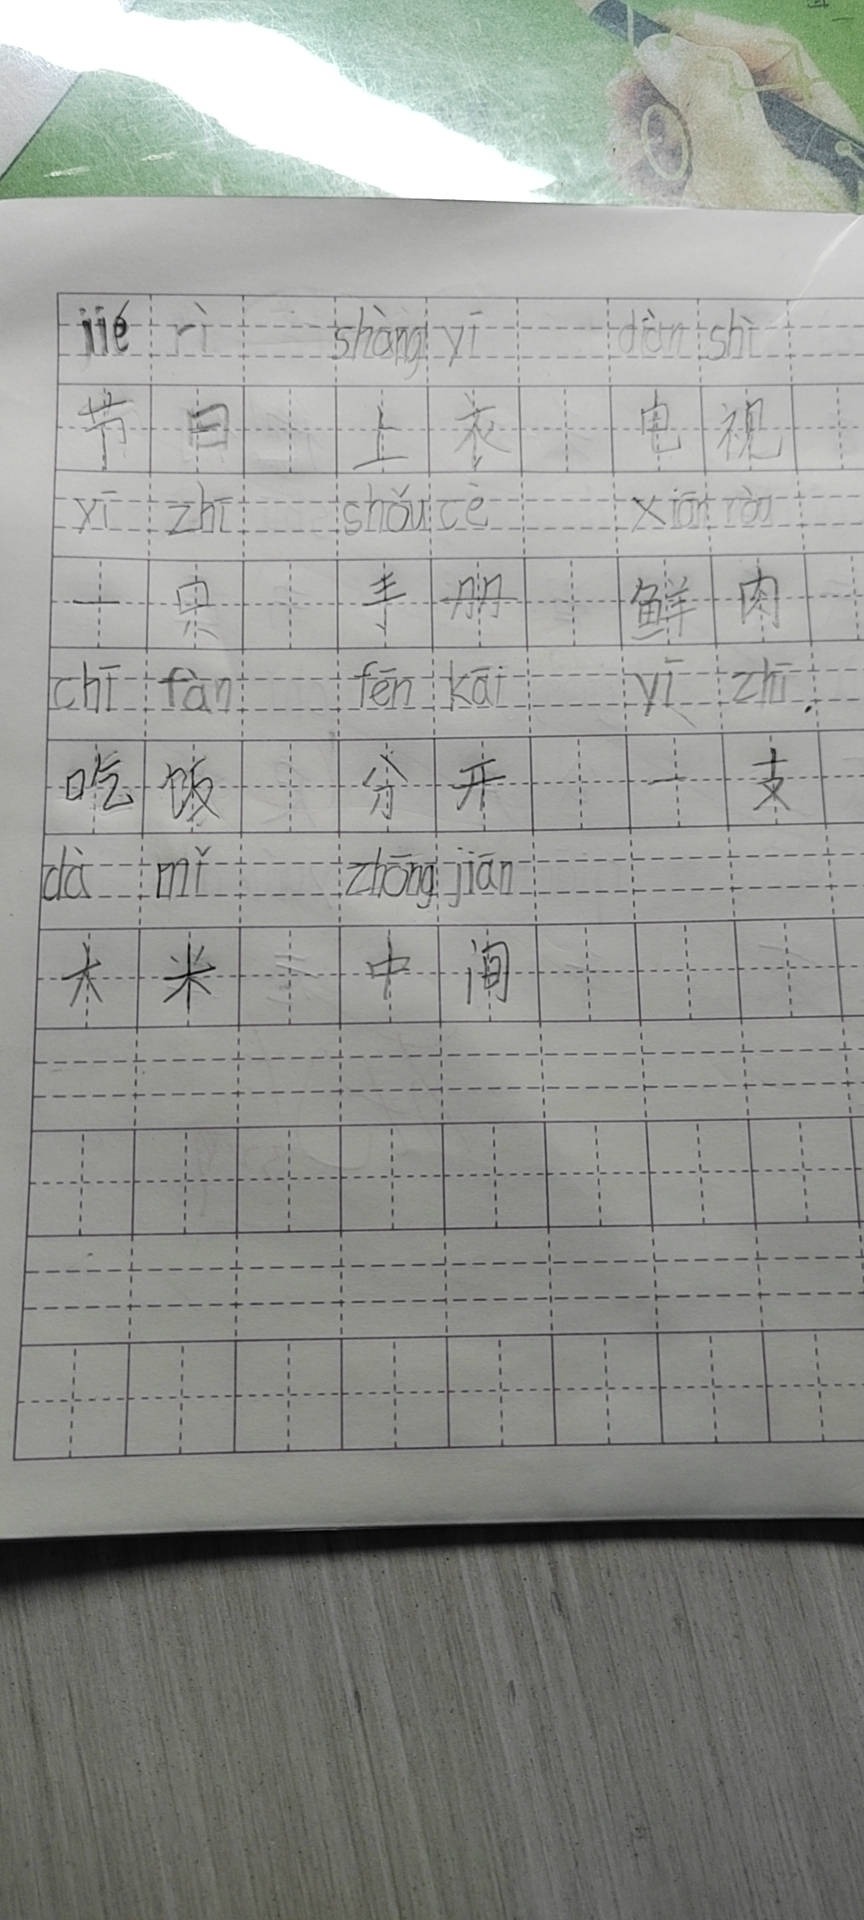 jié rì shàng yī diàn shì
节日 上衣 电视
yī zhī shǒu cè xiān ròu
一只 手册 鲜肉
chī fàn fēn kāi yī zhī
吃饭 分开 一支
dà mǐ zhōng jiān
大米 中间